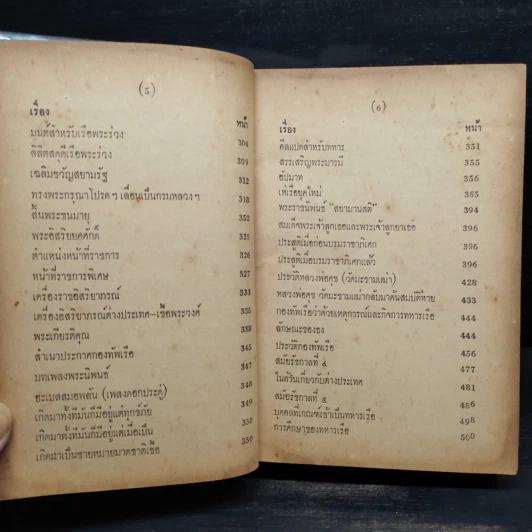 (5)
เรื่อง หน้า
มนต์สำหรับเรือพระร่วง 304
ลิลิตสดุดีเรือพระร่วง 309
เฉลิมขวัญสยามรัฐ 312
ทรงพระกรุณาโปรด ฯ เลื่อนเป็นกรมหลวง ฯ 318
สิ้นพระชนมายุ 322
พระอิสริยยศศักดิ์ 325
ตำแหน่งหน้าที่ราชการ 326
หน้าที่ราชการพิเศษ 327
เครื่องราชอิสริยาภรณ์ 333
เครื่องอิสริยาภรณ์ต่างประเทศ—เชื้อพระวงศ์ 335
พระเกียรติคุณ 337
สำเนาประกาศกองทัพเรือ 345
บทเพลงพระนิพนธ์ 347
ฮะเบสสมอพลัน (เพลงดอกประดู่) 348
เกิดมาทั้งทีมันก็มีอยู่แต่ทุกข์ภัย 349
เกิดมาทั้งทีมันก็ดีอยู่แต่เมื่อเป็น 350
เกิดมาเป็นชายหมายมาดชาติเชื้อ 350
(6)
เรื่อง หน้า
ศีลแปดสำหรับทหาร 351
สรรเสริญพระบารมี 355
อัปมาท 362
เห่เรือยุคใหม่ 365
พระราชนิพนธ์ "สยามานุสติ" 394
สมเด็จพระเจ้าลูกเธอและพระเจ้าลูกยาเธอ 396
ประสูติเมื่อก่อนบรมราชาภิเศก 396
ประสูติเมื่อบรมราชาภิเศกแล้ว 396
ประวัติหลวงพ่อศุข (วัดมะขามเฒ่า) 428
หลวงพ่อศุข วัดมะขามเฒ่ากลับมาค้นสมบัติท้าย 433
กองทัพเรือว่าด้วยเหตุการณ์และกิจการทหารเรือ 444
ลักษณะของ 444
ประวัติกองทัพเรือ 456
สมัยรัชกาลที่ ๔ 477
ในด้านเกี่ยวกับต่างประเทศ 481
สมัยรัชกาลที่ ๕ 486
บุคคลที่เกณฑ์เข้าเป็นทหารเรือ 498
การศึกษาของทหารเรือ 500